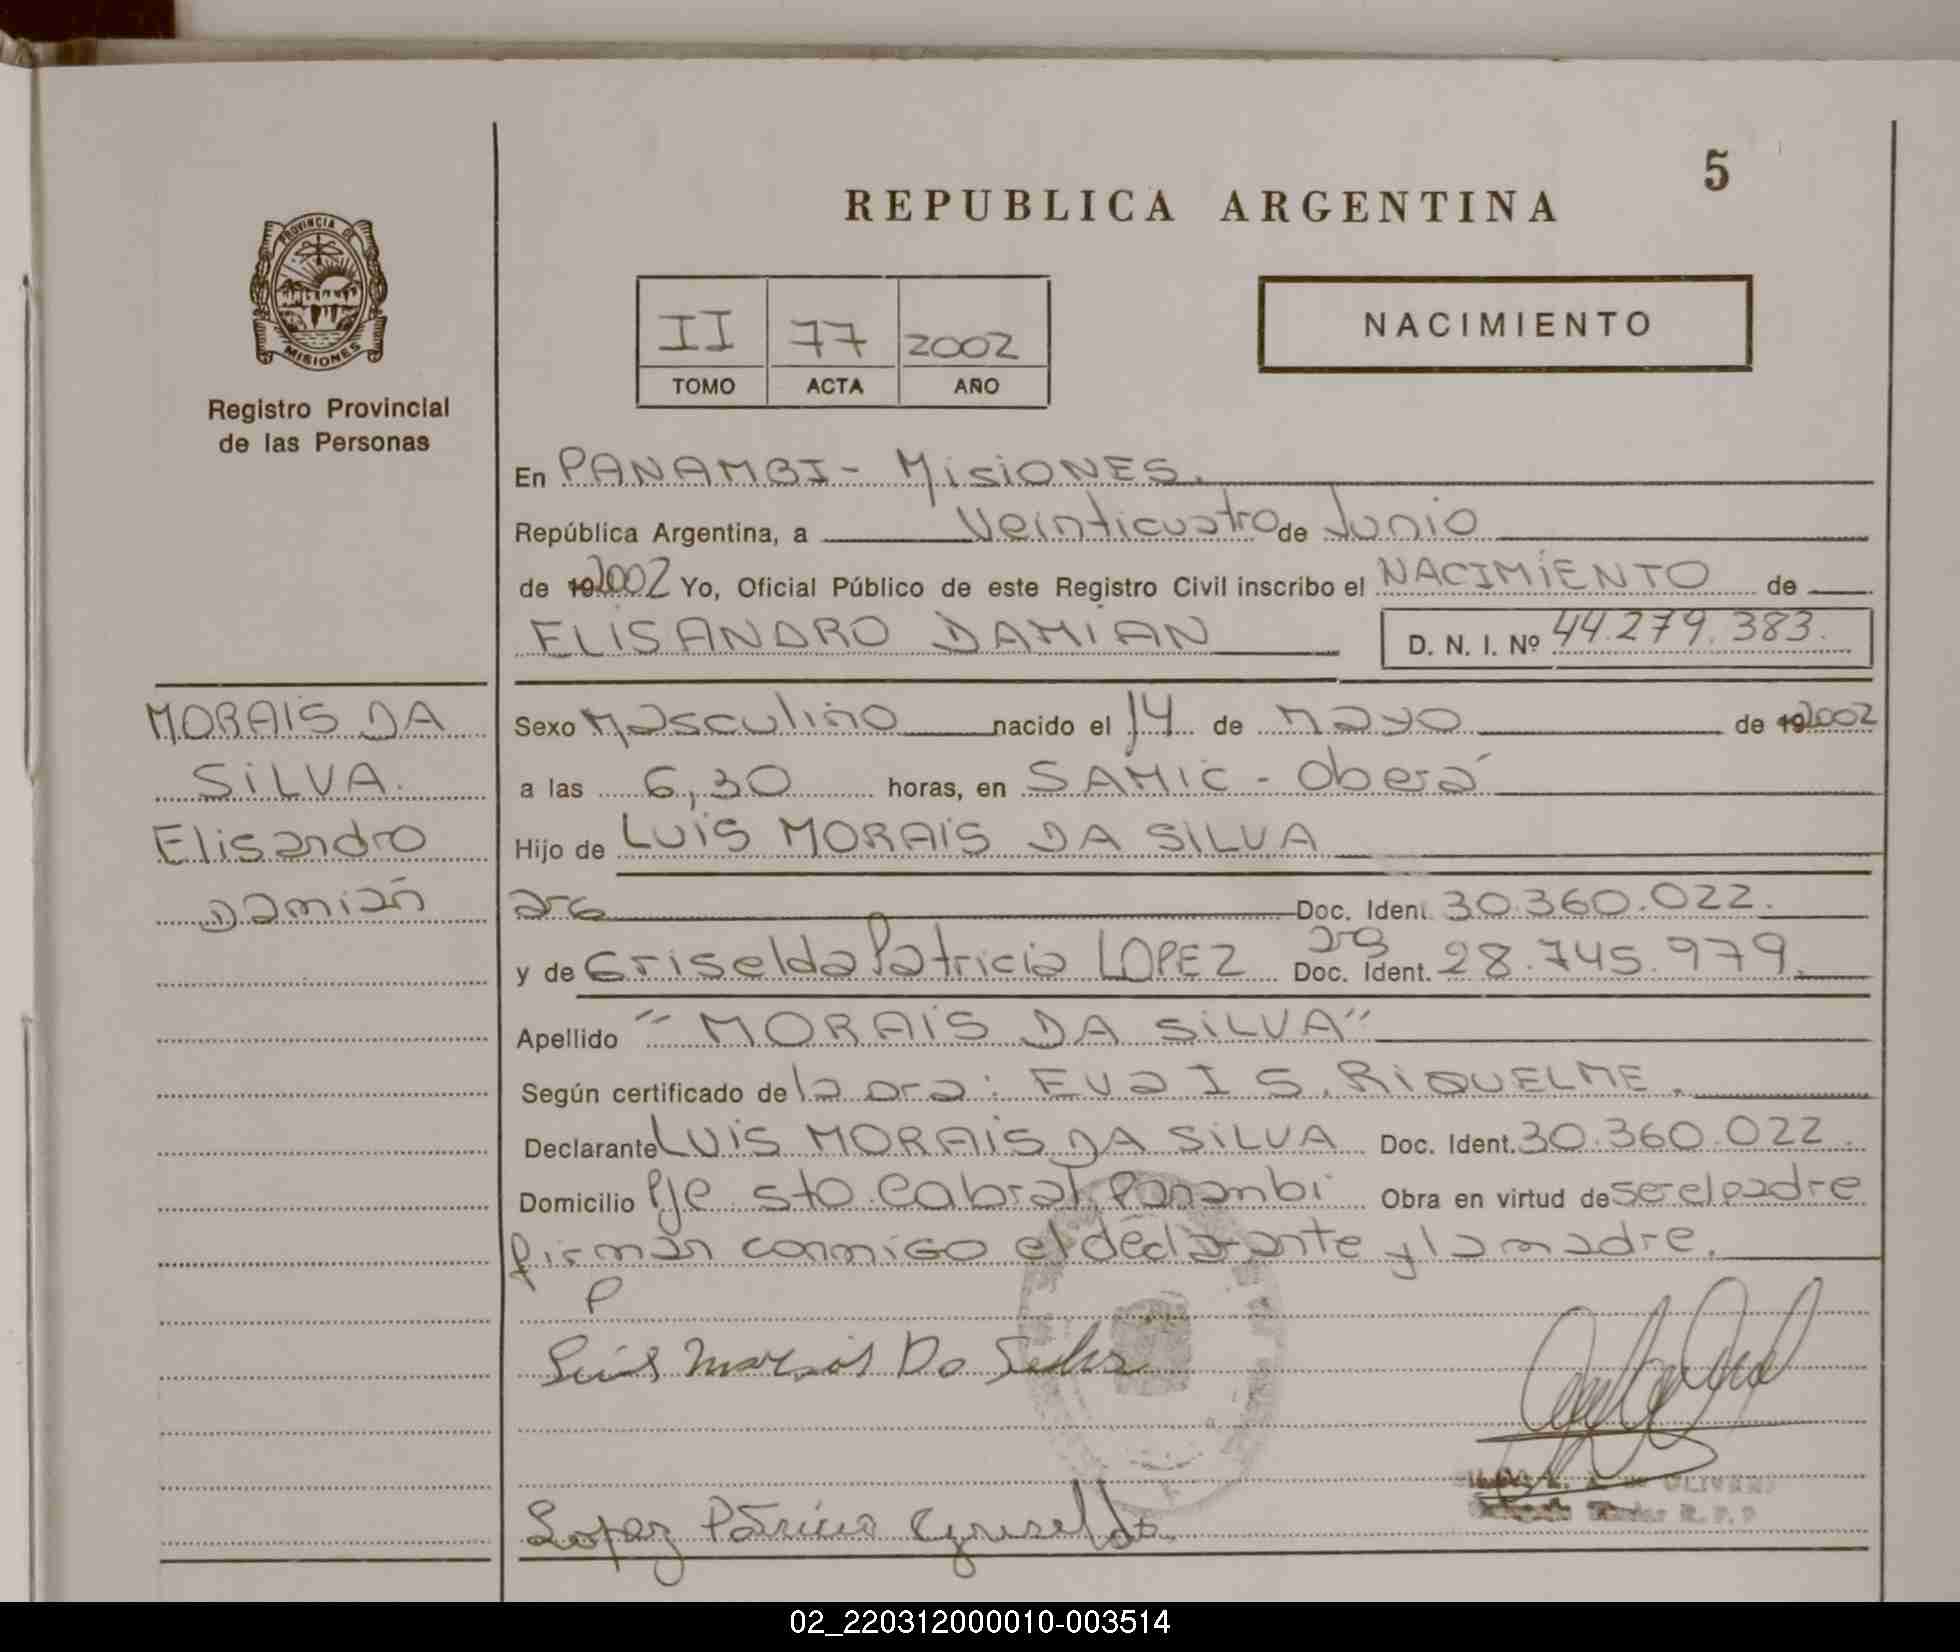 5
REPUBLICA ARGENTINA
PROVINCIA DE
MISIONES
Registro Provincial
de las Personas
II 77 2002
TOMO ACTA AÑO
NACIMIENTO
En PANAMBI - MISIONES.
República Argentina, a Veinticuatro de Junio
de 192002 Yo, Oficial Público de este Registro Civil inscribo el NACIMIENTO de
ELISANDRO DAMIAN D. N. I. Nº 44.279.383.
MORAIS DA
SILVA.
Elisandro
Damián
Sexo Masculino nacido el 14 de mayo de 192002
a las 6,30 horas, en SAMIC - Oberá
Hijo de LUIS MORAIS DA SILVA
arg Doc. Ident. 30.360.022.
y de Griselda Patricia LOPEZ arg Doc. Ident. 28.745.979.
Apellido "MORAIS DA SILVA"
Según certificado de la Dra: EVA I S. RIQUELME.
Declarante LUIS MORAIS DA SILVA Doc. Ident. 30.360.022.
Domicilio Pje Sto. Cabral Panambi Obra en virtud de ser el padre
firman conmigo el declarante y la madre.
Luis Morais Da Silva
Lopez Patricia Griselda
R. P. P
02_220312000010-003514